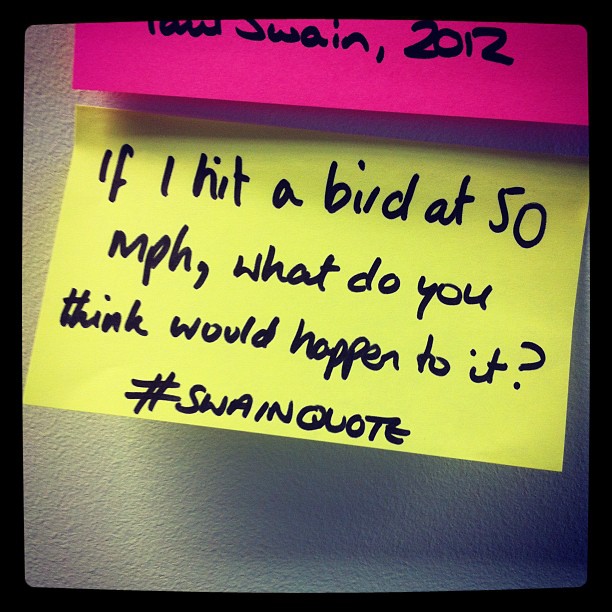 Swain, 2012
If I hit a bird at 50
mph, what do you
think would happen to it?
#SWAINQUOTE